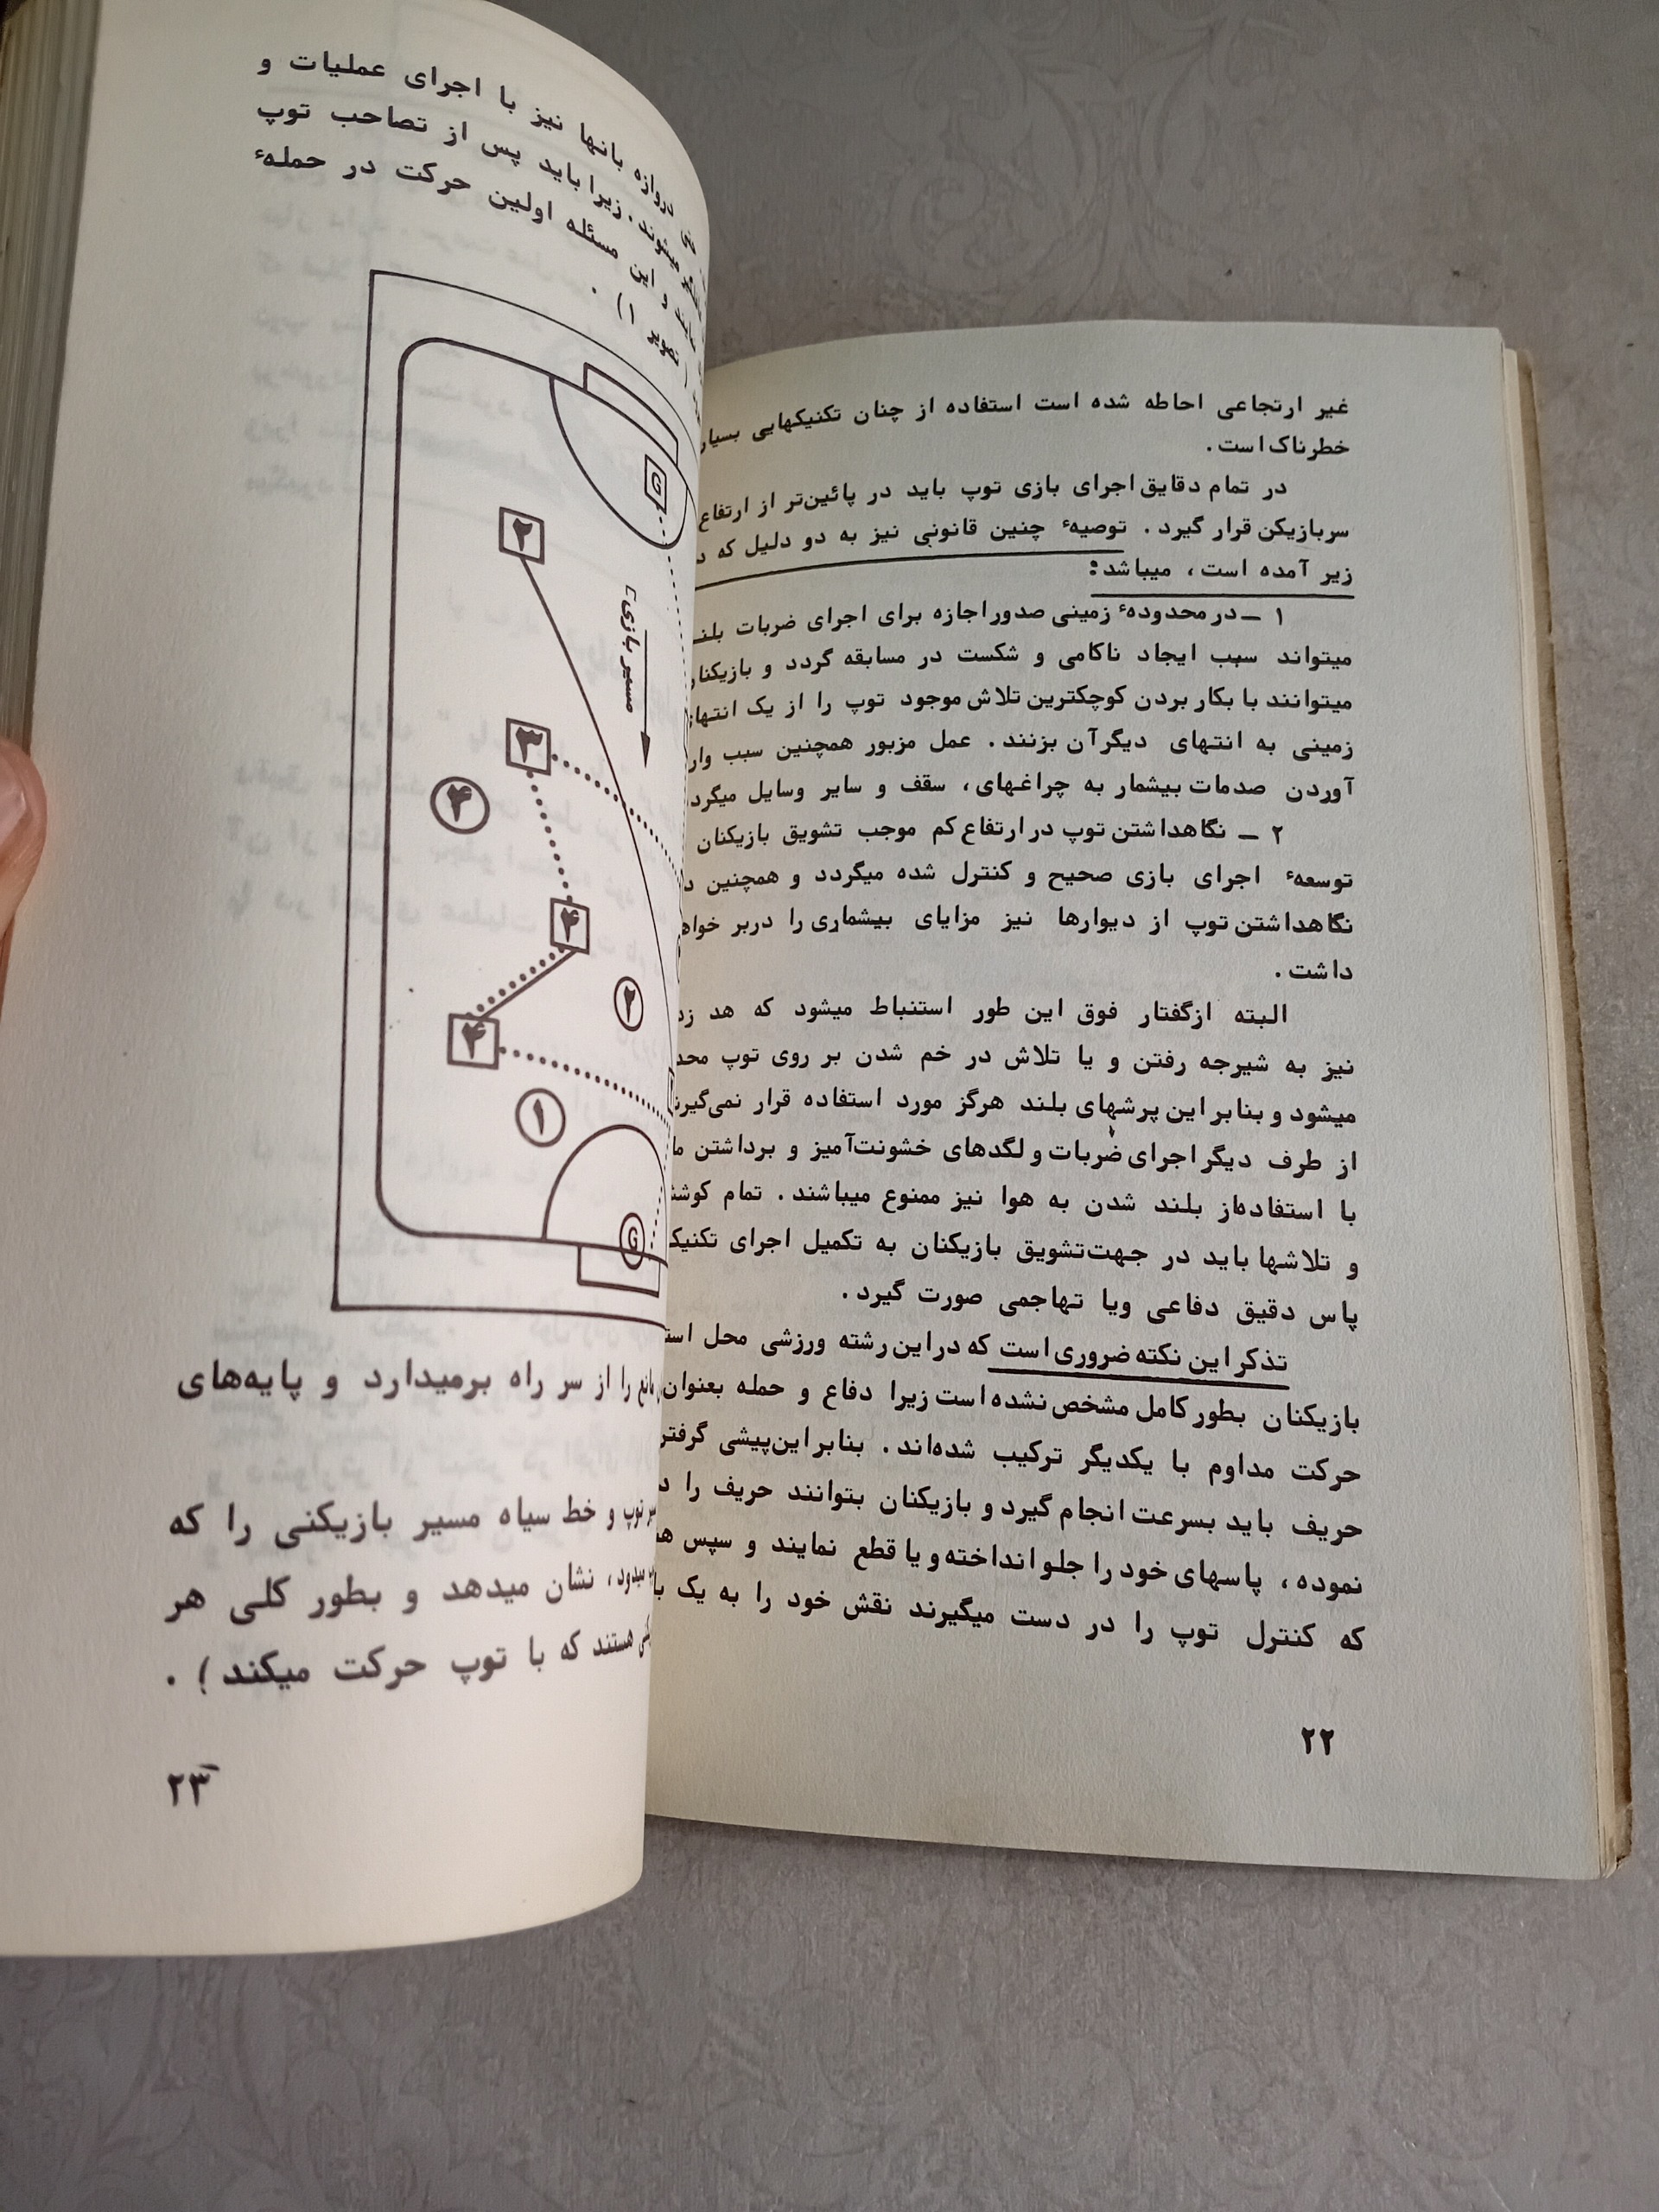 غیر ارتجاعی احاطه شده است استفاده از چنان تکنیکهایی بسیار
خطرناک است.
در تمام دقایق اجرای بازی توپ باید در پائین‌تر از ارتفاع
سربازیکن قرار گیرد. توصیهٔ چنین قانونی نیز به دو دلیل که
زیر آمده است، میباشد:
۱ – در محدودهٔ زمینی صدور اجازه برای اجرای ضربات
میتواند سبب ایجاد ناکامی و شکست در مسابقه گردد و
میتوانند با بکار بردن کوچکترین تلاش موجود توپ را از یک
زمینی به انتهای دیگر آن بزنند. عمل مزبور همچنین سبب
آوردن صدمات بیشمار به چراغهای، سقف و سایر وسایل
۲ – نگاهداشتن توپ در ارتفاع کم موجب تشویق بازیکنان
توسعهٔ اجرای بازی صحیح و کنترل شده میگردد و همچنین
نگاهداشتن توپ از دیوارها نیز مزایای بیشماری را دربر
داشت.
البته از گفتار فوق این طور استنباط میشود که هد
نیز به شیرجه رفتن و یا تلاش در خم شدن بر روی توپ
میشود و بنابر این پرشهای بلند هرگز مورد استفاده قرار
از طرف دیگر اجرای ضربات و لگدهای خشونت‌آمیز و برداشتن
با استفاده‌از بلند شدن به هوا نیز ممنوع میباشند. تمام
و تلاشها باید در جهت تشویق بازیکنان به تکمیل اجرای
پاس دقیق دفاعی ویا تهاجمی صورت گیرد.
تذکر این نکته ضروری است که در این رشته ورزشی محل
بازیکنان بطور کامل مشخص نشده است زیرا دفاع و حمله بعنوان
حرکت مداوم با یکدیگر ترکیب شده‌اند. بنابر این پیشی
حریف باید بسرعت انجام گیرد و بازیکنان بتوانند حریف را
نموده، پاسهای خود را جلو انداخته و یا قطع نمایند و سپس
که کنترل توپ را در دست میگیرند نقش خود را به یک
۲۲
دروازه بانها نیز با اجرای عملیات و
میشوند. زیرا باید پس از تصاحب توپ
و این مسئله اولین حرکت در حملهٔ
تصویر ۱).
G
۲
مسیر بازی
۳
۴
۴
۲
۴
۱
G
مانع را از سر راه برمیدارد و پایه‌های
توپ و خط سیاه مسیر بازیکنی را که
میدود، نشان میدهد و بطور کلی هر
هستند که با توپ حرکت میکند).
۲۳